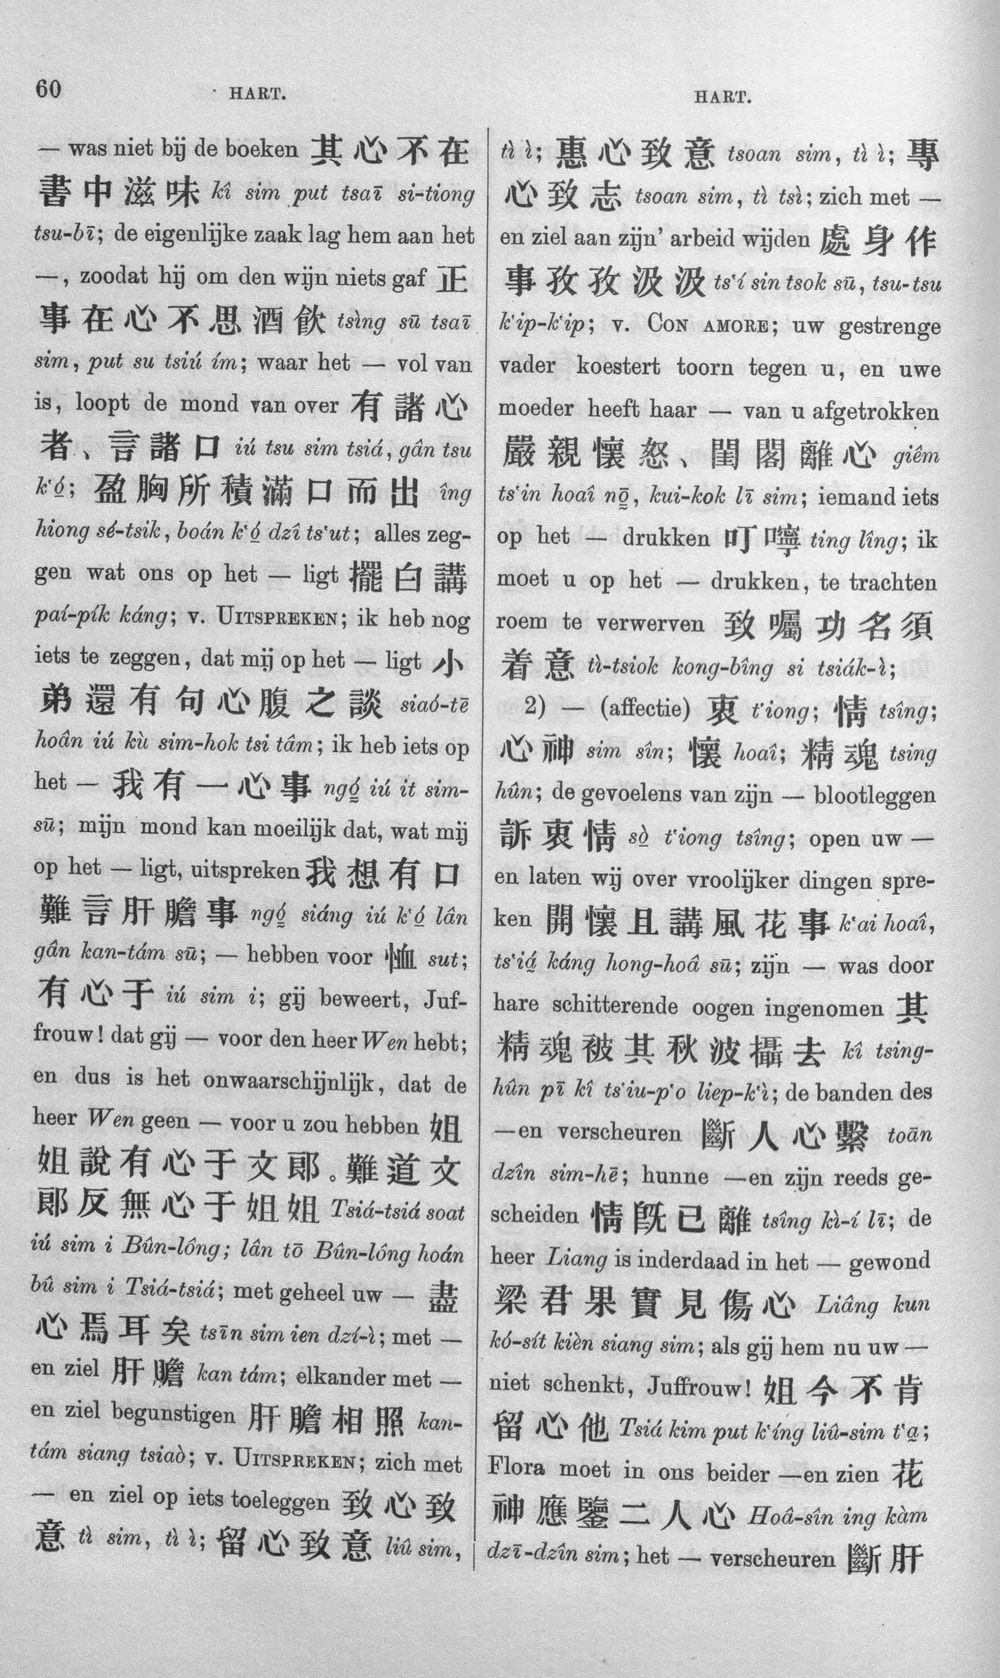 60
HART.
HART.
— was niet bij de boeken 其心不在
書中滋味 kî sim put tsaī si-tiong
tsu-bī; de eigenlijke zaak lag hem aan het
—, zoodat hij om den wijn niets gaf 正
事在心不思酒飲 tsìng sū tsaī
sim, put su tsiú ím; waar het — vol van
is, loopt de mond van over 有諸心
者、言諸口 iú tsu sim tsiá, gân tsu
k‘ó̱; 盈胸所積滿口而出 îng
hiong sé-tsik, boán k‘ó̱ dzî ts‘ut; alles zeg-
gen wat ons op het — ligt 擺白講
paí-pík káng; v. UITSPREKEN; ik heb nog
iets te zeggen, dat mij op het — ligt 小
弟還有句心腹之談 siaó-tē
hoân iú kù sim-hok tsi tâm; ik heb iets op
het — 我有一心事 ngó̳ iú it sim-
sū; mijn mond kan moeilijk dat, wat mij
op het — ligt, uitspreken 我想有口
難言肝膽事 ngó̳ siáng iú k‘ó̱ lân
gân kan-tám sū; — hebben voor 恤 sut;
有心于 iú sim i; gij beweert, Juf-
frouw! dat gij — voor den heer Wen hebt;
en dus is het onwaarschijnlijk, dat de
heer Wen geen — voor u zou hebben 姐
姐說有心于文郞。難道文
郞反無心于姐姐 Tsiá-tsiá soat
iú sim i Bûn-lông; lân tō Bûn-lông hoán
bû sim i Tsiá-tsiá; met geheel uw — 盡
心焉耳矣 tsīn sim ien dzí-ì; met —
en ziel 肝膽 kan tám; elkander met —
en ziel begunstigen 肝膽相照 kan-
tám siang tsiaò; v. UITSPREKEN; zich met
— en ziel op iets toeleggen 致心致
意 tì sim, tì ì; 留心致意 liû sim,
tì ì; 惠心致意 tsoan sim, tì ì; 專
心致志 tsoan sim, tì tsì; zich met —
en ziel aan zijn’ arbeid wijden 處身作
事孜孜汲汲 ts‘í sin tsok sū, tsu-tsu
k‘ip-k‘ip; v. CON AMORE; uw gestrenge
vader koestert toorn tegen u, en uwe
moeder heeft haar — van u afgetrokken
嚴親懷怒、閨閣離心 giêm
ts‘in hoaî nō̳, kui-kok lī sim; iemand iets
op het — drukken 叮嚀 ting lîng; ik
moet u op het — drukken, te trachten
roem te verwerven 致囑功名須
着意 tì-tsiok kong-bîng si tsiák-ì;
2) — (affectie) 衷 t‘iong; 情 tsîng;
心神 sim sîn; 懷 hoaî; 精魂 tsing
hûn; de gevoelens van zijn — blootleggen
訴衷情 sò̱ t‘iong tsîng; open uw —
en laten wij over vroolijker dingen spre-
ken 開懷且講風花事 k‘ai hoaî,
ts‘iá̱ káng hong-hoâ sū; zijn — was door
hare schitterende oogen ingenomen 其
精魂被其秋波攝去 kî tsing-
hûn pī kî ts‘iu-p‘o liep-k‘ì; de banden des
—en verscheuren 斷人心繫 toān
dzîn sim-hē; hunne —en zijn reeds ge-
scheiden 情旣已離 tsîng kì-í lī; de
heer Liang is inderdaad in het — gewond
梁君果實見傷心 Liâng kun
kó-sít kièn siang sim; als gij hem nu uw —
niet schenkt, Juffrouw! 姐今不肯
留心他 Tsiá kim put k‘íng liû-sim t‘a̱;
Flora moet in ons beider —en zien 花
神應鑒二人心 Hoâ-sîn ing kàm
dzī-dzîn sim; het — verscheuren 斷肝